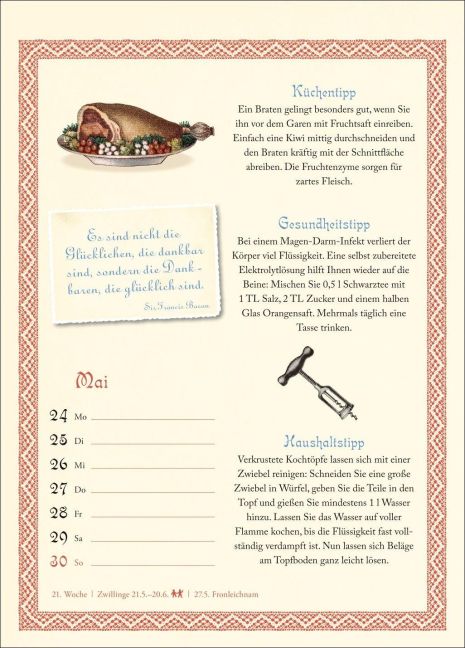 Küchentipp
Ein Braten gelingt besonders gut, wenn Sie
ihn vor dem Garen mit Fruchtsaft einreiben.
Einfach eine Kiwi mittig durchschneiden und
den Braten kräftig mit der Schnittfläche
abreiben. Die Fruchtenzyme sorgen für
zartes Fleisch.
Es sind nicht die
Glücklichen, die dankbar
sind, sondern die Dank-
baren, die glücklich sind.
Sir Francis Bacon
Gesundheitstipp
Bei einem Magen-Darm-Infekt verliert der
Körper viel Flüssigkeit. Eine selbst zubereitete
Elektrolytlösung hilft Ihnen wieder auf die
Beine: Mischen Sie 0,5 l Schwarztee mit
1 TL Salz, 2 TL Zucker und einem halben
Glas Orangensaft. Mehrmals täglich eine
Tasse trinken.
Mai
24 Mo
25 Di
26 Mi
27 Do
28 Fr
29 Sa
30 So
Haushaltstipp
Verkrustete Kochtöpfe lassen sich mit einer
Zwiebel reinigen: Schneiden Sie eine große
Zwiebel in Würfel, geben Sie die Teile in den
Topf und gießen Sie mindestens 1 l Wasser
hinzu. Lassen Sie das Wasser auf voller
Flamme kochen, bis die Flüssigkeit fast voll-
ständig verdampft ist. Nun lassen sich Beläge
am Topfboden ganz leicht lösen.
21. Woche | Zwillinge 21.5.–20.6. | 27.5. Fronleichnam